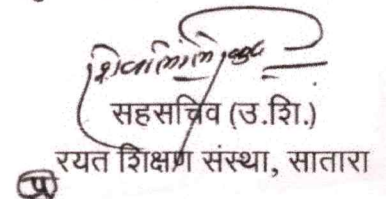 सहसचिव (उ.शि.)
रयत शिक्षण संस्था, सातारा
प्र